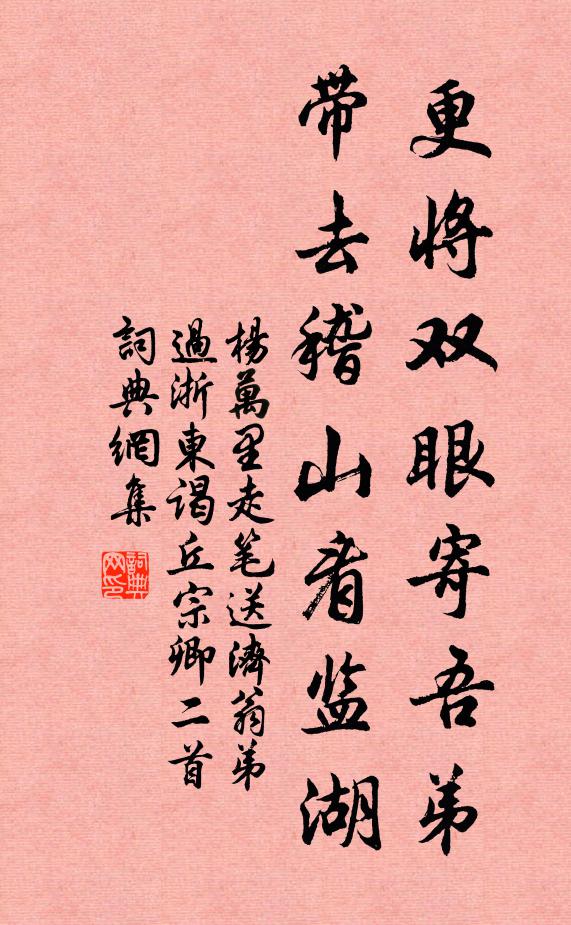 更将双眼寄吾弟
带去稽山看监湖
楊萬里走笔送濟翁弟
過浙東谒丘宗卿二首
詞典網集
詞典网印